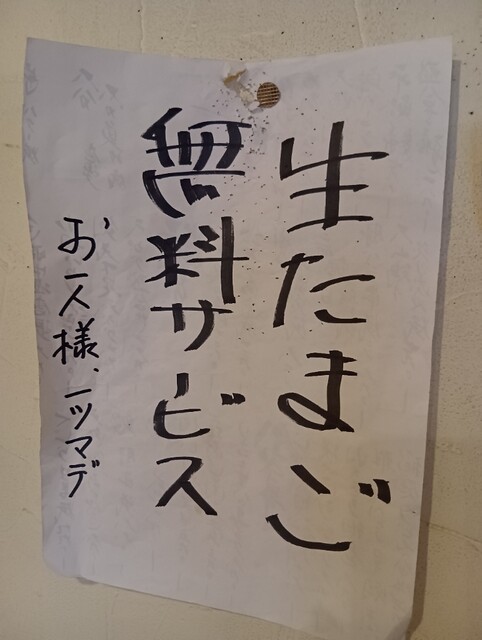 生たまご
無料サービス
お一人様、一ツマデ